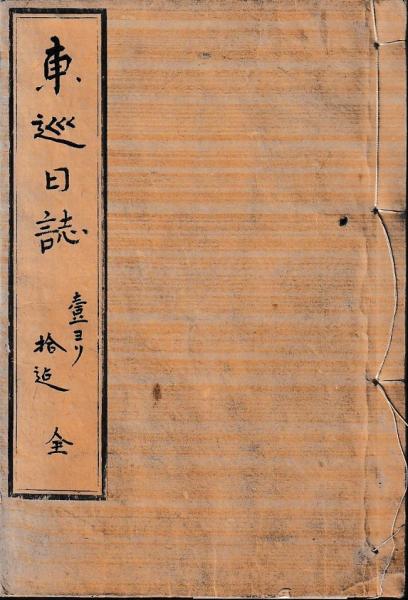 東巡日誌
壹ヨリ
拾迠
全